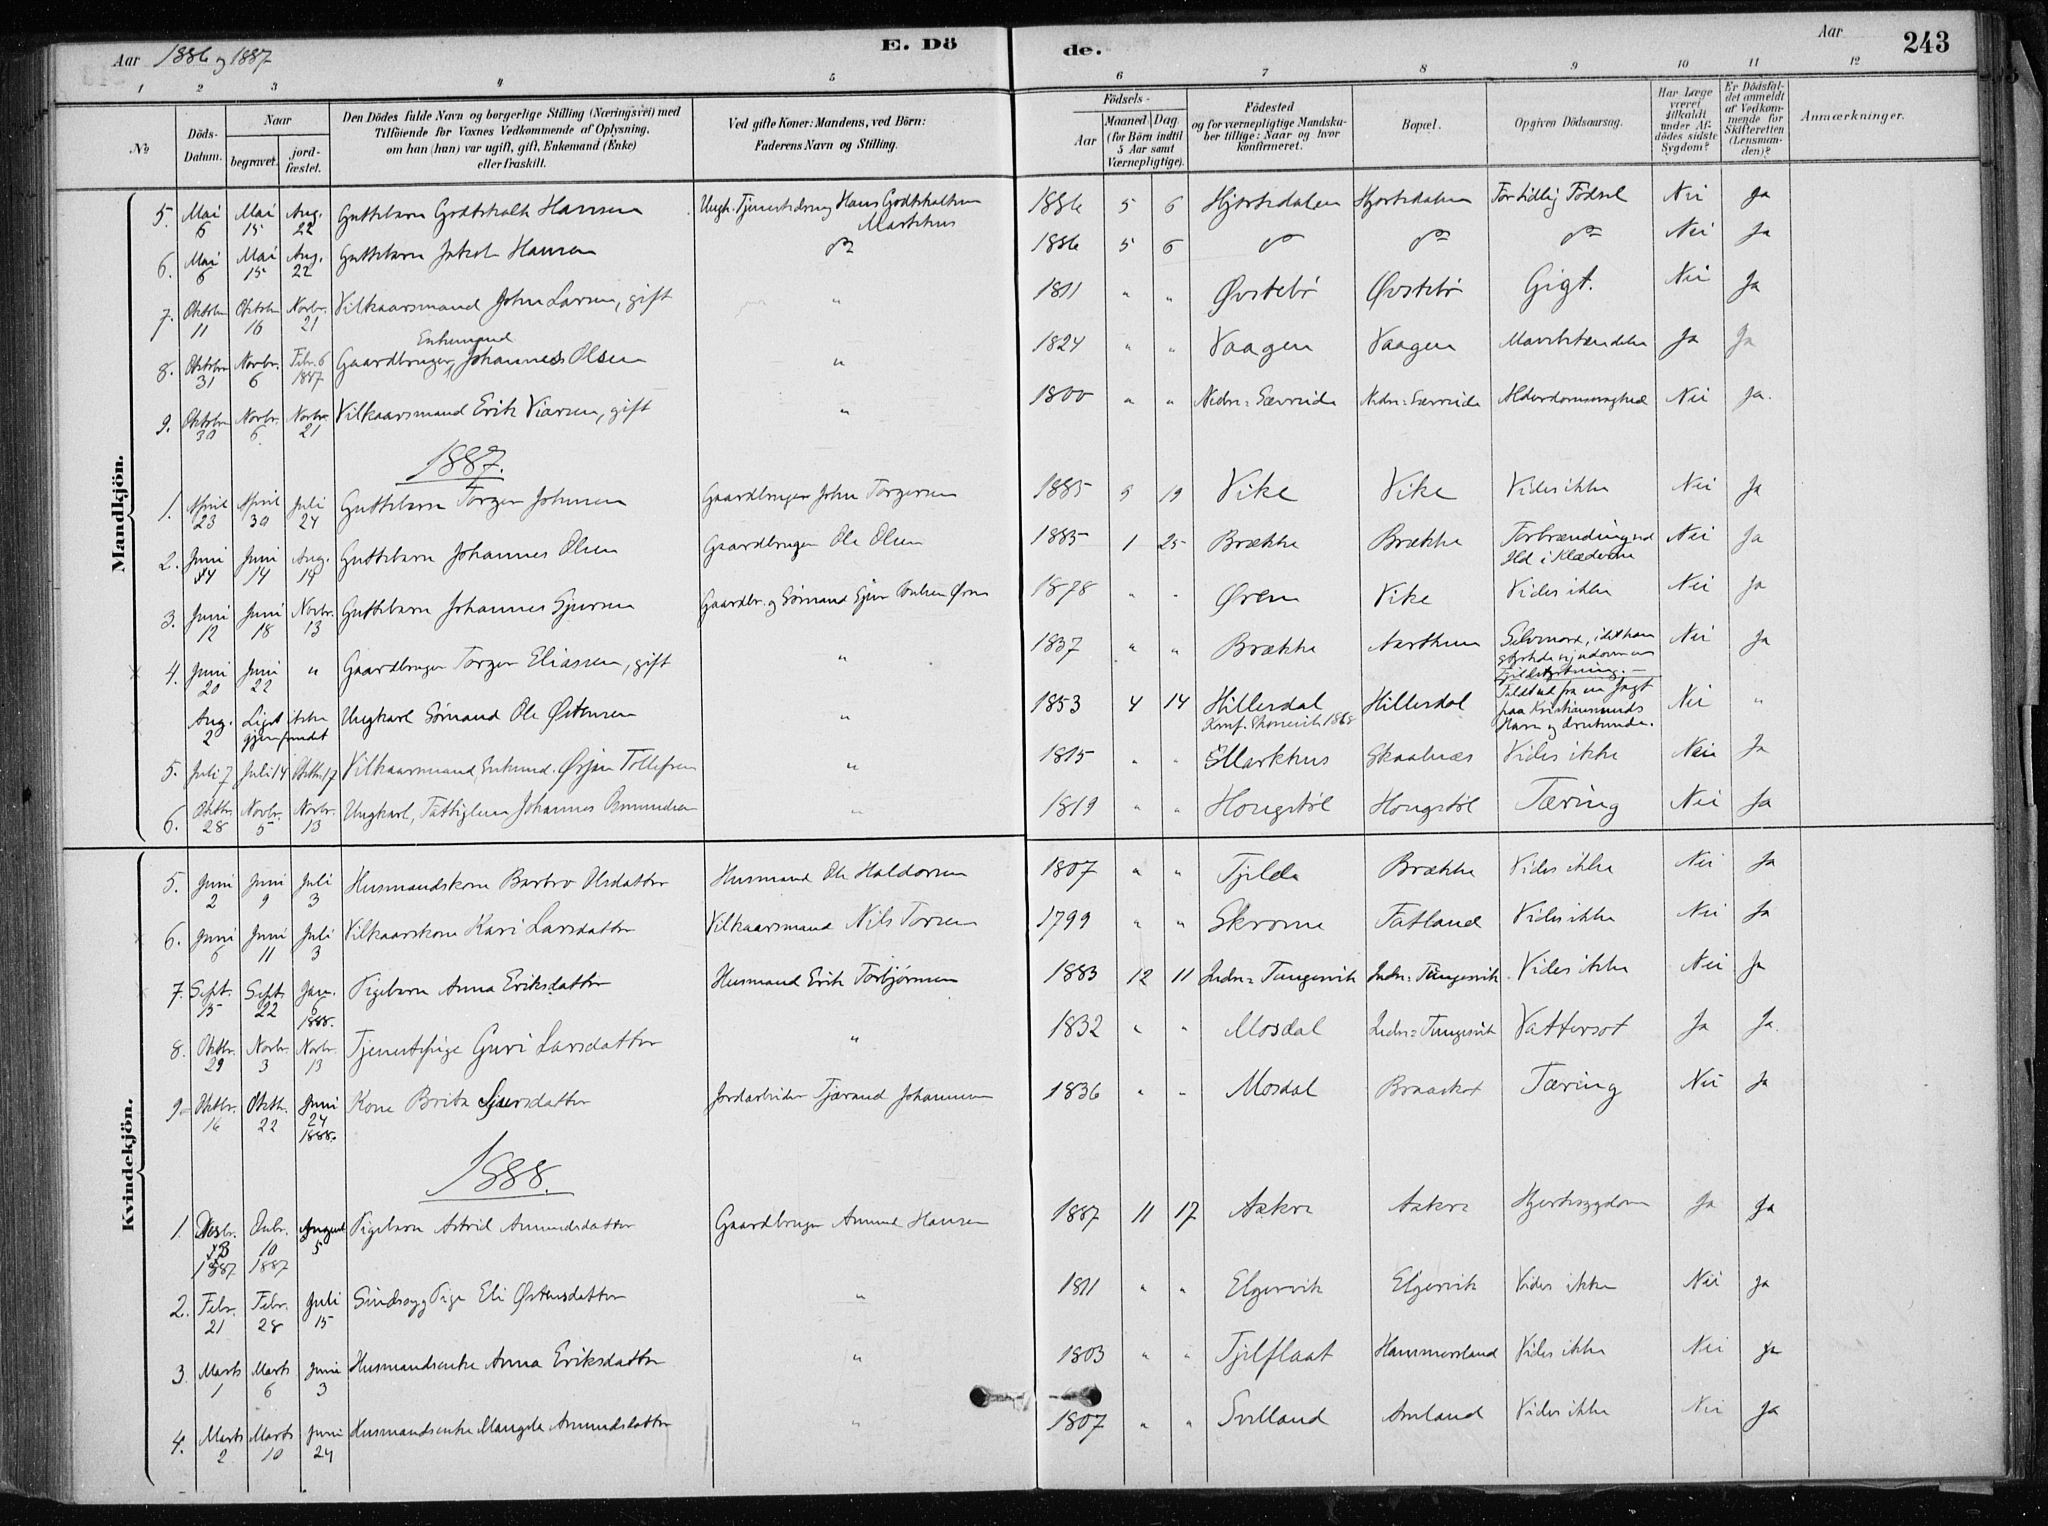 Aar 1886 og 1887
E. Döde.
Aar
243
1 2 3 4 5 6 7 8 9 10 11 12
No
Döds-Datum.
Naar
begravet.
jordfæstet.
Den Dödes fulde Navn og borgerlige Stilling (Næringsvei) med
Tilföiende for Voxnes Vedkommende af Oplysning,
om han (hun) var ugift, gift, Enkemand (Enke)
eller fraskilt.
Ved gifte Koner: Mandens, ved Börn:
Faderens Navn og Stilling.
Födsels-
Aar
Maaned. Dag.
(for Börn indtil
5 Aar samt
Værnepligtige).
Födested
og for værnepligtige Mandskaber tillige: Naar og hvor
konfirmeret.
Bopæl.
Opgiven Dödsaarsag.
Har Læge
været
tilkaldt
under Afdödes sidste
Sygdom?
Er Dödsfaldet anmeldt
af Vedkommende for
Skifteretten
(Lensmanden)?
Anmærkninger.
Mandkjön.
5. Mai 6 Mai 15 Aug. 22 Guttebarn Godtskalk Hansen Ungk. Tjenestedreng Hans Godtskalksen Markhus 1886 5 6 Hjortedalen Hjortedalen For tidlig Fødsel Nei Ja
6. Mai 6 Mai 15 Aug. 22 Guttebarn Jakob Hansen do 1886 5 6 do do do Nei Ja
7. Oktober 11 Oktober 16 Novbr. 21 Vilkaarsmand John Larsen, gift " 1811 " " Øvstebø Øvstebø Gigt. Nei Ja
8. Oktober 31 Novbr. 6 Febr. 6 1887 Gaardbruger, Enkemand Johannes Olsen " 1824 " " Vaagen Vaagen Ja Ja
9. Oktober 30 Novbr. 6. Novbr. 21 Vilkaarsmand Erik Viarsen, gift " 1800 " " Nedre=Sævreide Nedre=Sævreide Alderdomssvaghed Nei Ja.
1887.
1. April 23 April 30 Juli 24 Guttebarn Torger Johnsen Gaardbruger John Torgersen 1885 9 19 Vike Vike Vides ikke Nei Ja
2. Juni 4 Juni 14 Aug. 14 Guttebarn Johannes Olsen Gaardbruger Ole Olsen 1885 1 25 Brække Brække Forbrænding ved Ild i Klæderne Nei Ja
3. Juni 12 Juni 18 Novbr. 13 Guttebarn Johannes Sjursen Gaardbr. og Sømand Sjur Øren 1878 " " Øren Vike Vides ikke Nei Ja
4. Juni 20 Juni 22 " Gaardbruger Torger Eliassen, gift " 1837 " " Brække Aarthun Selvmord, idet han styrtede sig udover en Nei Ja
Aug. 2 Liget ikke gjenfundet Ungkarl Sømand Ole Østensen " 1853 4 14 Hillesdal Konf. 1868 Hillesdal Faldt ud fra en Jagt paa Kristiansunds Havn og druknede. Nei "
5. Juli 7 Juli 14 Oktbr. 17 Vilkaarsmand, Enkmd. Ørjan Tollefsen " 1815 " " Markhus Skaalnæs Vides ikke Nei Ja
6. Oktbr. 28 Novbr. 5 Novbr. 13 Ungkarl, Fattiglem Johannes " 1819 " " Hougstøl Hougstøl Tæring Nei Ja
Kvindekjön.
5. Juni 2 Juni 9 Juli 3 Husmandskone Barbro Olsdatter Husmand Ole Haldorsen 1807 " " Tjelde Brække Vides ikke Nei Ja
6. Juni 6 Juni 11 Juli 3 Vilkaarskone Kari Larsdatter Vilkaarsmand Nils Torsen 1799 " " Skromme Fatland Vides ikke Nei Ja
7. Sept. 15 Sept. 22 Jan. 6 1888. Pigebarn Anna Eriksdatter Husmand Erik Torbjørnsen 1883 12 11 Indre=Tungesvik Indre=Tungesvik Vides ikke Nei Ja
8. Oktbr. 29 Novbr. 3 Novbr. 13 Tjenestepige Guri Larsdatter " 1832 " " Mosdal Indre=Tungesvik Vattersot Ja Ja.
9. Oktbr. 16 Oktbr. 22 Juni 24 1888. Kone Brita Sjursdatter Jordarbeider Tjærand Johannessen 1836 " " Mosdal Tæring Nei Ja
1888.
1. Desbr. 3 1887 Desbr. 10 1887 August 5 Pigebarn Astrid Amundsdatter Gaardbruger Amund Hansen 1887 11 17 Askre Askre Hjertesygdom Ja Ja
2. Febr. 21 Febr. 28 Juli 15 Sindssyg Pige Eli Østensdatter " 1811 " " Elgervik Elgervik Vides ikke Nei Ja
3. Marts 1 Marts 6 Juni 3 Husmandsenke Anna Eriksdatter " 1803 " " Tjelflaat Hammersland Vides ikke Nei Ja
4. Marts 2 Marts 10 Juni 24 Husmandsenke Mangela Amundsdatter " 1807 " " Svelland Amland Vides ikke Nei Ja